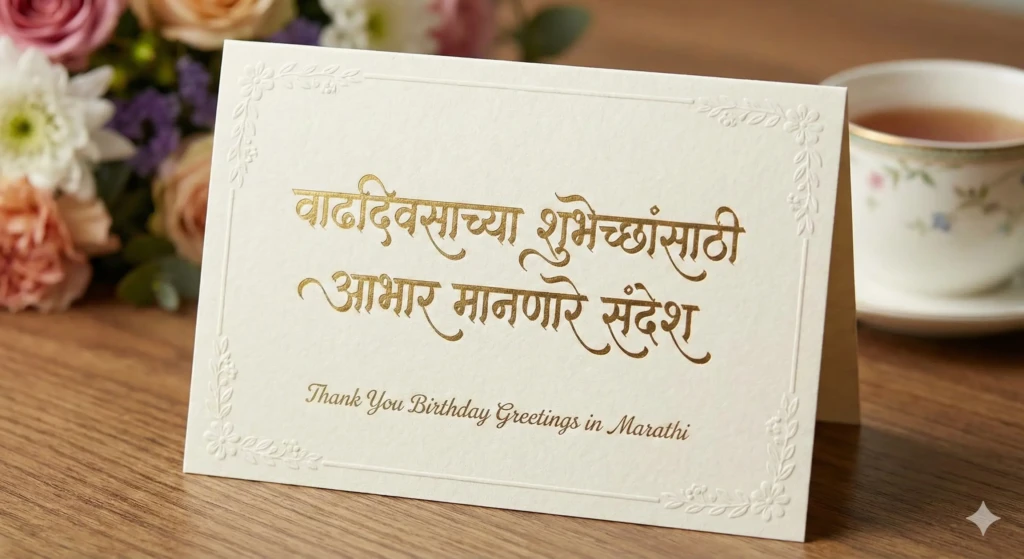 वाढदिवसाच्या शुभेच्छांसाठी
आभार मानणारे संदेश
Thank You Birthday Greetings in Marathi